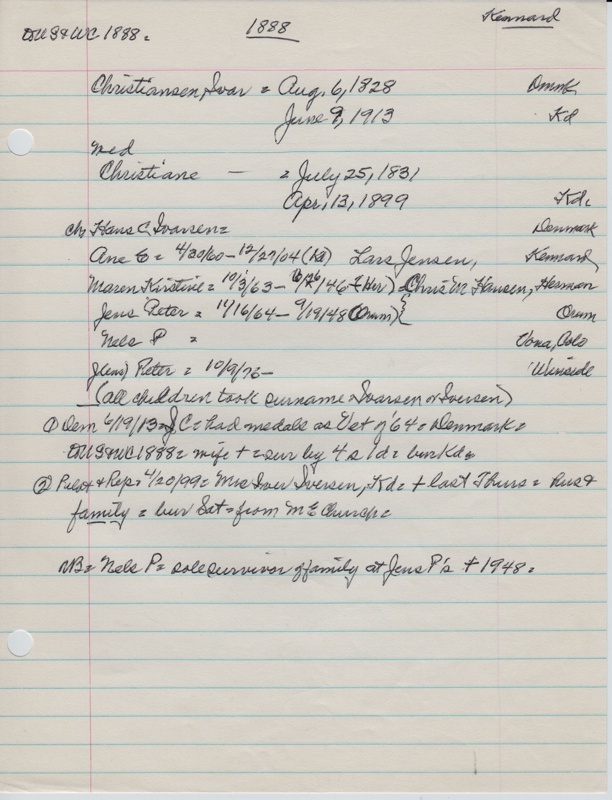 1888
Kennard
To US & WC 1888 =
Christiansen, Ivar = Aug. 6, 1828 Dnmk
June 9, 1913 Kd
med
Christiane — = July 25, 1831
Apr. 13, 1899 Kd =
ch = Hans C. Ivarsen = Denmark
Ane to = 4/30/60 - 12/27/04 (Kd) Lars Jensen, Kennard
Maren Kirstine = 10/3/63 - /46 - (Her) Chris M Hansen, Herman
Jens Peter = 11/16/64 - 9/19/48 (Orum) { Orum
Nels P = Vona, Colo
J(ens) Peter = 10/9/76 - Winside
(all children took surname = Ivarsen or Iversen)
① Dem 6/19/13 = J C = had medals as Vet of '64 = Denmark =
To US & WC 1888 = wife + = sur by 4 s 1 d = bur Kd =
② Pilot & Rep = 4/20/99 = Mrs Iver Iversen, Kd = + last Thurs = hus &
family = bur Sat = from M E Church =
NB = Nels P = sole survivor of family at Jens P's + 1948 =